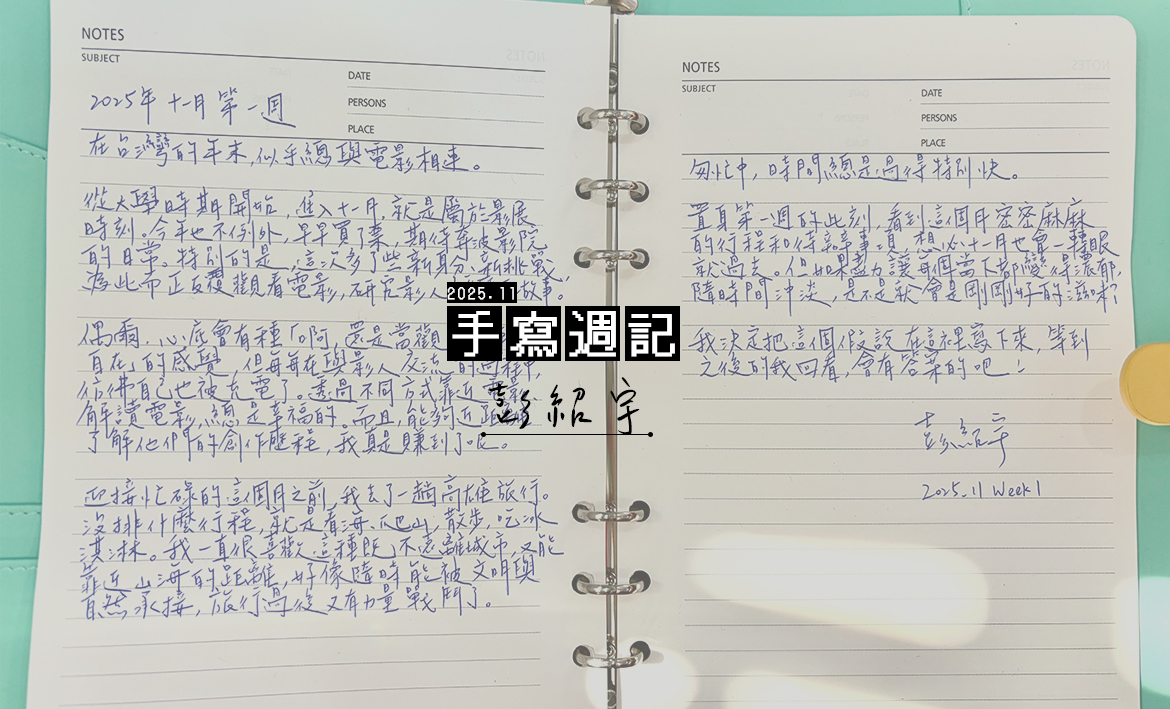 NOTES
SUBJECT
DATE
PERSONS
PLACE
2025年 十一月 第一週
在台灣的年末,似乎總與電影相連。
從大學時期開始,進入十一月,就是屬於影展
時刻。今年也不例外,早早買了票,期待奔波影院
的日常。特別的是,這次多了些新身分、新挑戰,
為此而正反覆觀看電影,研究影人 故事。
偶爾,心底會有種「啊,還是當觀
自在」的感覺,但每每在與影人交流的過程中,
彷彿自己也被充電了。透過不同方式靠近電影、
解讀電影,總是幸福的。而且,能夠近距離
了解他們的創作歷程,我真是賺到了呢。
迎接忙碌的這個月之前,我去了一趟高雄旅行。
沒排什麼行程,就是看海、爬山,散步,吃冰
淇淋。我一直很喜歡這種既不遠離城市,又能
靠近山海的距離,好像隨時能被文明與
自然承接,旅行過後又有力量戰鬥了。
2025.11
手寫週記
彭紹宇
NOTES
SUBJECT
DATE
PERSONS
PLACE
匆忙中,時間總是過得特別快。
置身第一週的此刻,看到這個月密密麻麻
的行程和待辦事項,想必十一月也會一轉眼
就過去。但如果盡力讓每個當下都變得濃郁,
隨時間沖淡,是不是就會是剛剛好的滋味?
我決定把這個假設在這裡寫下來,等到
之後的我回看,會有答案的吧!
彭紹宇
2025.11 Week 1